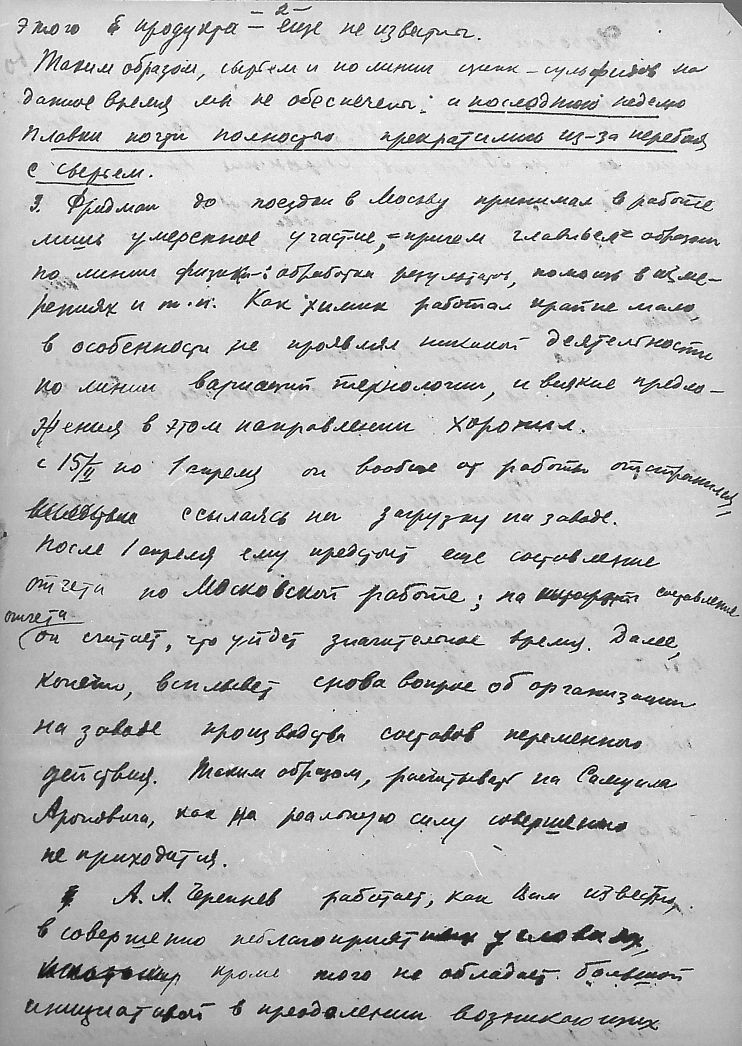 -2-
этого продукта — еще не известны.
Таким образом, сырьем и по линии цинк-сульфидов на
данное время мы не обеспечены; и последнюю неделю
плавки почти полностью прекратились из-за перебоя
с сырьем.
3. Фридман до поездки в Москву принимал в работе
лишь умеренное участие, причем главным образом
по линии физики: обработка результатов, помощь в изме-
рениях и т.п. Как химик работал крайне мало,
в особенности не проявлял никакой деятельности
по линии вариаций технологии, и всякие предло-
жения в этом направлении хоронил.
с 15/II по 1 апреля он вообще от работы отстранился,
ссылаясь на загрузку на заводе.
После 1 апреля ему предстоит еще составление
отчета по Московской работе; на составление
отчета
он считает, что уйдет значительное время. Далее,
конечно, всплывет снова вопрос об организации
на заводе производства составов переменного
действия. Таким образом, рассчитывать на Самуила
Ароновича, как на реальную силу совершенно
не приходится.
А.А. Черепнев работает, как Вам известно,
в совершенно неблагоприятных условиях,
кроме того не обладает большой
инициативой в преодолении возникающих